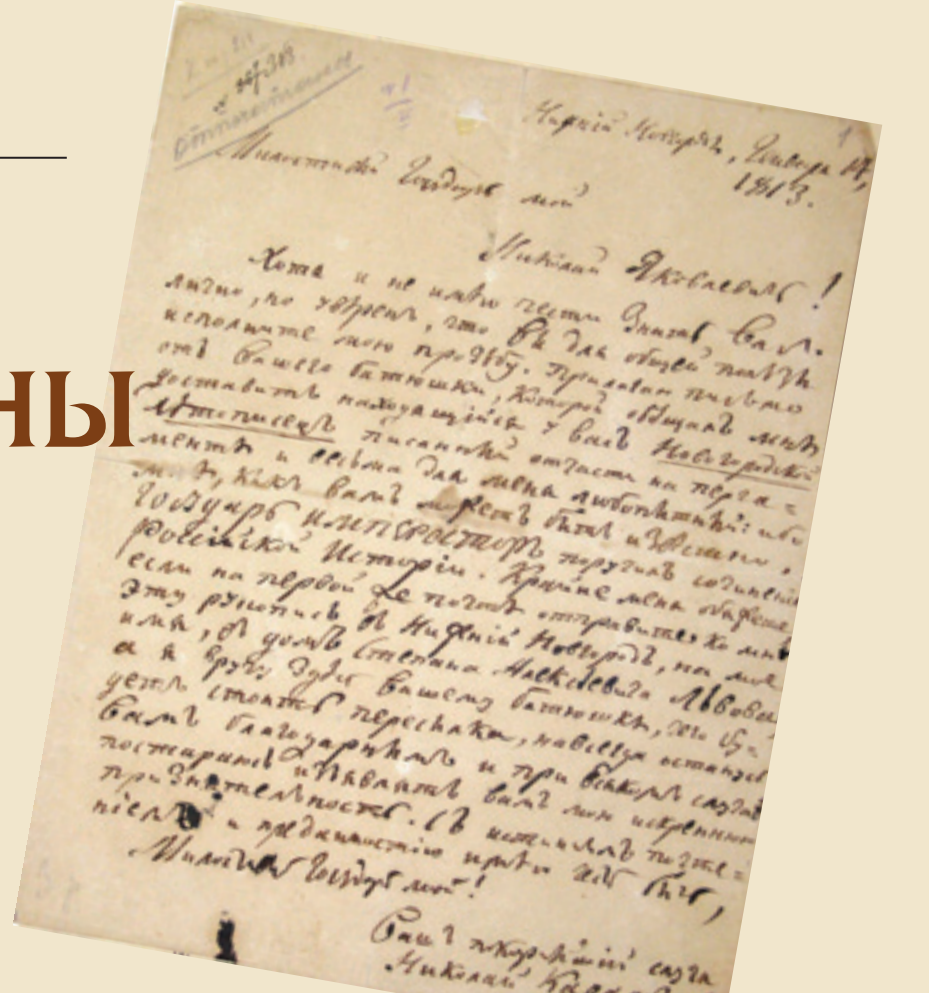 Нижній Новгородъ, Генваря 17,
1813.
Милостивый Государь мой
Николай Яковлевичь!
Хотя и не имѣю чести знать Васъ
лично, но увѣренъ, что Вы для общей пользы
исполните мою прозьбу. Прилагаю письмо
отъ вашего батюшки, которой обѣщалъ мнѣ
доставить находящійся у васъ Новогородской
Лѣтописецъ писанный отчасти на перга=
ментѣ и весьма для меня любопытный: ибо
мнѣ, какъ вамъ можетъ быть извѣстно,
Государь Императоръ поручилъ сочиненіе
Россійской Исторіи. Крайне меня обяжете,
если на первой же почтѣ отправите ко мнѣ
эту рукопись въ Нижній Новгородъ, на мое
имя, въ домъ Степана Алексѣевича Львова,
а я вручу здѣсь вашему батюшкѣ, что бу=
детъ стоить пересылка, навсегда останусь
вамъ благодарнымъ и при всякомъ случаѣ
постараюсь изъявлять вамъ мою искреннюю
признательность. Съ истиннымъ почте=
ніемъ и преданностію имѣю честь быть,
Милостивый Государь мой!
Вашъ покорнѣйшій слуга
Николай
НЫ